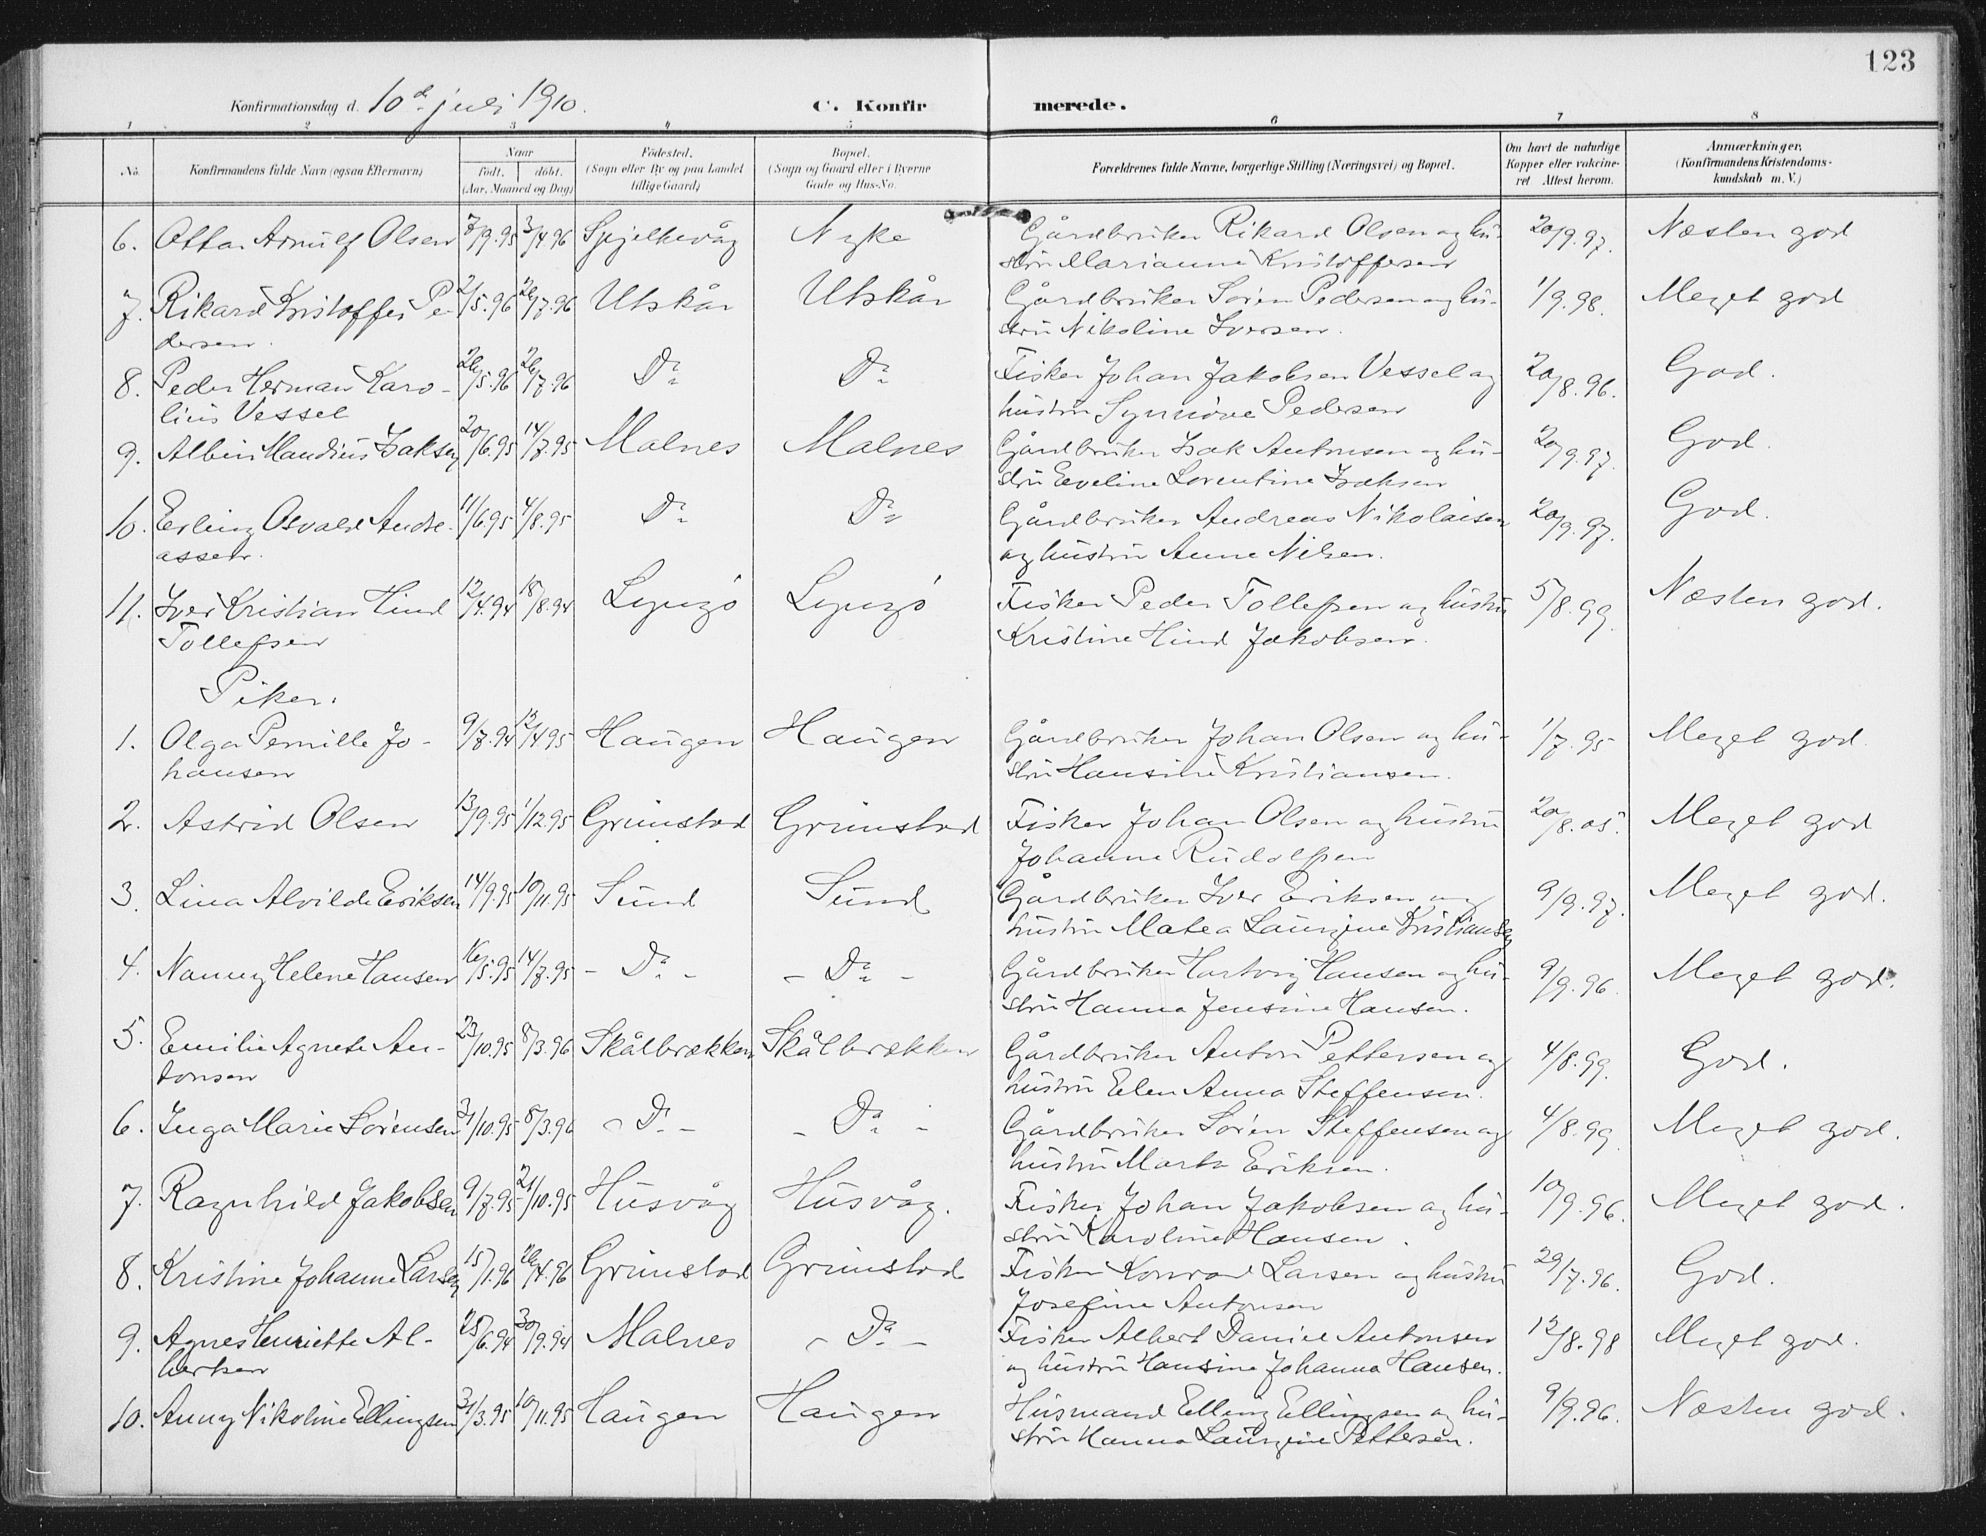 123
Konfirmationsdag d. 10de juli 1910. C. Konfirmerede.
1 2 3 4 5 6 7 8
No. Konfirmandens fulde Navn (ogsaa Efternavn) Naar født. døbt. (Aar, Maaned og Dag) Fødested. (Sogn eller By og paa Landet tillige Gaard) Bopæl. (Sogn og Gaard eller i Byerne Gade og Hus-No. Forældrenes fulde Navne, borgerlige Stilling (Næringsvei) og Bopæl. Om havt de naturlige Kopper eller vaccineret Attest herom. Anmærkninger, (Konfirmandens Kristendomskundskab m. V.)
6. Ottar Arnulf Olsen 7/9.95 3/4.96 Spjelkevåg Nyke Gårdbruker Rikard Olsen og hu- 20/9.97. Næsten god
stru Marianne Kristoffersen
7. Rikard Kristoffer Pe- 2/5.96 26/7.96 Utskår Utskår Gårdbruker Søren Pedersen og hu- 1/9.98. Meget god
dersen. stru Nikoline Iversen.
8. Peder Herman Karo- 26/5.96 26/7.96 Do Do Fisker Johan Jakobsen Vessel og 20/8.96. God.
lius Vessel hustru Synnøve Pedersen
9. Albin Maudius Isaksen 20/6.95 14/7.95 Malnes Malnes Gårdbruker Isak Antonsen og hu- 20/9.97. God.
stru Eveline Lorentine Isaksen
10. Erling Osvald Andre- 11/6.95 4/8.95 Do Do Gårdbruker Andreas Nikolaisen 20/9.97. God.
assen. og hustru Anne Nilsen.
11. Iver Kristian Hind 12/4.94 18/8.94 Lyngø Lyngø Fisker Peder Tollefsen og hustru 5/8.99. Næsten god.
Tollefsen Kristine Hind Jakobsen.
Piker.
1. Olga Pernille Jo- 9/7.94 12/4.95 Haugen Haugen Gårdbruker Johan Olsen og hu- 1/7.95 Meget god.
hansen stru Hansine Kristiansen.
2. Astrid Olsen 13/9.95 1/12.95 Grimstad Grimstad Fisker Johan Olsen og hustru 20/8.05. Meget god
Johanne Rudolfsen
3. Lina Alvilde Eriksen 14/9.95 10/11.95 Sund Sund Gårdbruker Iver Eriksen og 9/9.97. Meget god.
hustru Matea Laurgine Kristiansen
4. Nanny Helene Hansen 16/5.95 14/7.95 - Do - - Do - Gårdbruker Hartvig Hansen og hu- 9/9.96. Meget god.
stru Hanna Jensine Hansen.
5. Emilie Agnete An- 23/10.95 8/3.96 Skålbrækken Skålbrækken Gårdbruker Anton Pettersen og 4/8.99. God.
tonsen hustru Elen Anna Steffensen.
6. Inga Marie Sørensen 31/10.95 8/3.96 - Do - - Do - Gårdbruker Søren Steffensen og 4/8.99. Meget god.
hustru Marta Eriksen.
7. Ragnhild Jakobsen 9/7.95 21/10.95 Husvåg Husvåg. Fisker Johan Jakobsen og hu- 10/9.96. Meget god.
stru Karoline Hansen.
8. Kristine Johanne Larsen 15/1.96 26/4.96 Grimstad Grimstad Fisker Konrad Larsen og hustru 29/7.96. God.
Josefine Antonsen
9. Agnes Henriette Al- 25/6.94 30/9.94 Malnes - Do - Fisker Albert Daniel Antonsen 12/8.98 Meget god.
bertsen og hustru Hansine Johanna Hansen.
10. Anny Nikoline Ellingsen 31/3.95 10/11.95 Haugen Haugen Husmand Elling Ellingsen og hu- 9/9.96. Næsten god.
stru Hanna Laurgine Pettersen.